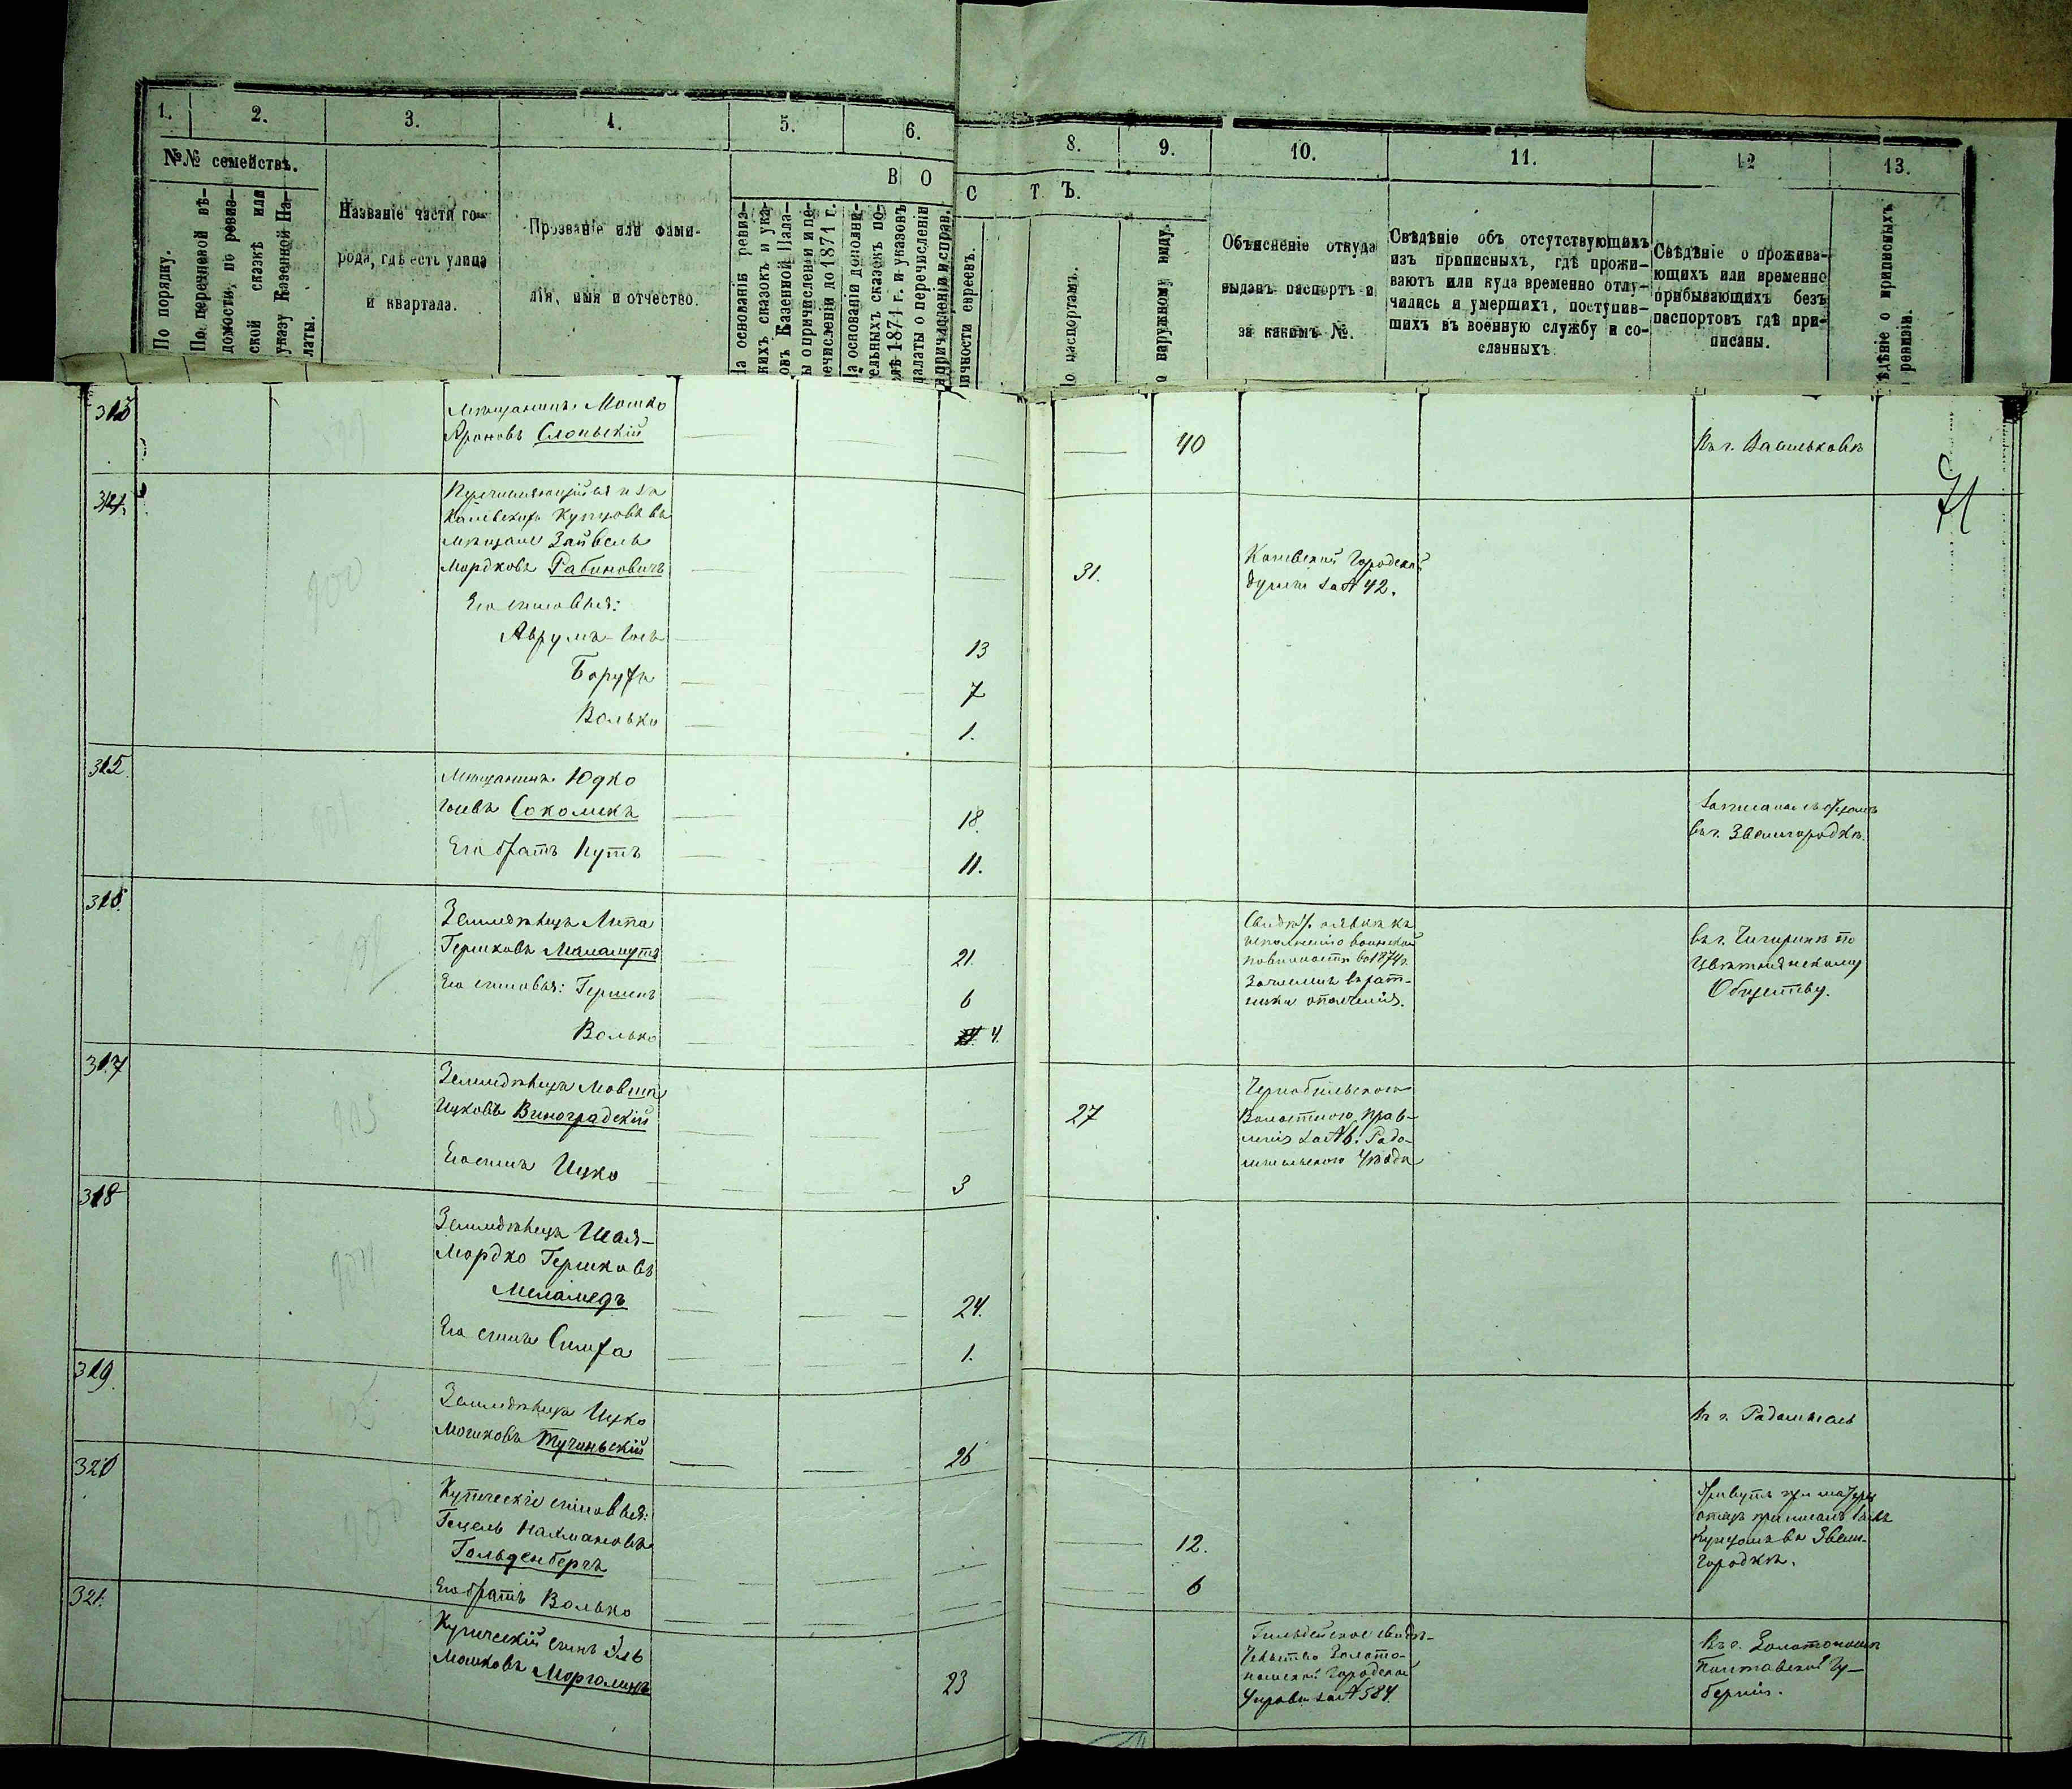 1. 2. 3. 4. 5. 6.
8. 9. 10. 11. 12 13.
№№ семействъ.
В О
С Т Ъ.
По порядку.
По перечневой вѣ-
домости, по ревиз-
ской сказкѣ или
указу Казенной Па-
латы.
Названіе части го-
рода, гдѣ есть улица
и квартала.
Прозваніе или фами-
лія, имя и отчество.
На основаніи ревиз-
скихъ сказокъ и ука-
зовъ Казенной Пала-
ты о причисленіи и пе-
речисленіи до 1871 г.
На основаніи дополни-
тельныхъ сказокъ по-
1871 г. и указовъ
палаты о перечисленіи
причисленіи и справ.
личности евреевъ.
По паспортамъ.
По наружному виду.
Объясненіе откуда
выданъ паспортъ и
за какимъ №.
Свѣдѣніе объ отсутствующихъ
изъ приписныхъ, гдѣ прожи-
ваютъ или куда временно отлу-
чились и умершихъ, поступив-
шихъ въ военную службу и со-
сланныхъ
Свѣдѣніе о прожива-
ющихъ или временно
прибывающихъ безъ
паспортовъ гдѣ при-
писаны.
Свѣдѣніе о приписныхъ
ревизіи.
71
313
Мѣщанинъ Мошко
Ароновъ Слоньскій
40
Въ г. Васильковѣ
314.
900
Перечисляющійся изъ
Каневскихъ Купцовъ въ
мѣщане Зайвель
Мордковъ Рабиновичъ
31.
Каневской Городской
Думы за № 42.
Его сыновья:
Аврумъ-Іось
13
Борухъ
7
Волько
1.
315.
901
Мѣщанинъ Юдко
Іосевъ Соколикъ
18.
Записанъ съ отцомъ
въ г. Звенигородкѣ.
Его братъ Нутъ
11.
316.
Земледѣлецъ Липа
Гершковъ Меламутъ
21.
Свидѣт. о явкѣ къ
исполненію воинской
повинности въ 1874 г.
Зачисленъ въ рат-
ники ополченія.
въ г. Чигиринѣ по
Цвѣтнянскому
Обществу.
Его сыновья: Гершенъ
6
Волько
4.
317
903
Земледѣлецъ Мовша
Ицковъ Виноградскій
27
Чернобыльского
Волостного Прав-
ленія за № 6. Радо-
мысльского Уѣзда
Его сынъ Ицко
3
318
904
Земледѣлецъ Шая-
Мордко Гершковъ
Меламедъ
24.
Его сынъ Симха
1.
319.
905
Земледѣлецъ Ицко
Мошковъ Тучиньскій
26
Въ г. Радомыслѣ
320
Купеческіе сыновья:
Гецель Нахмановъ
Гольденбергъ
12.
Живутъ при матери
отецъ приписанъ
Купцомъ въ Звени-
городкѣ.
Его братъ Волько
6
321.
907
Купеческій сынъ Эль
Мошковъ Морголинъ
23
Гильдейское свидѣ-
тельство Золото-
ношской Городской
Управы за № 584.
Въ г. Золотоношѣ
Полтавской Гу-
берніи.